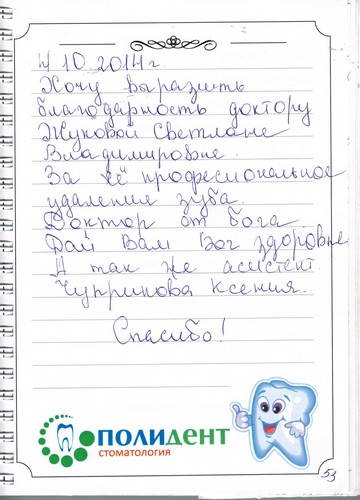 4.10.2014г.
Хочу выразить
благодарность доктору
Жуковой Светлане
Владимировне.
За её професиональное
удаление зуба.
Доктор от бога.
Дай Вам Бог здоровие
А так же асистент.
Чупринова Ксения.
Спасибо!
ПОЛИДЕНТ
СТОМАТОЛОГИЯ
53